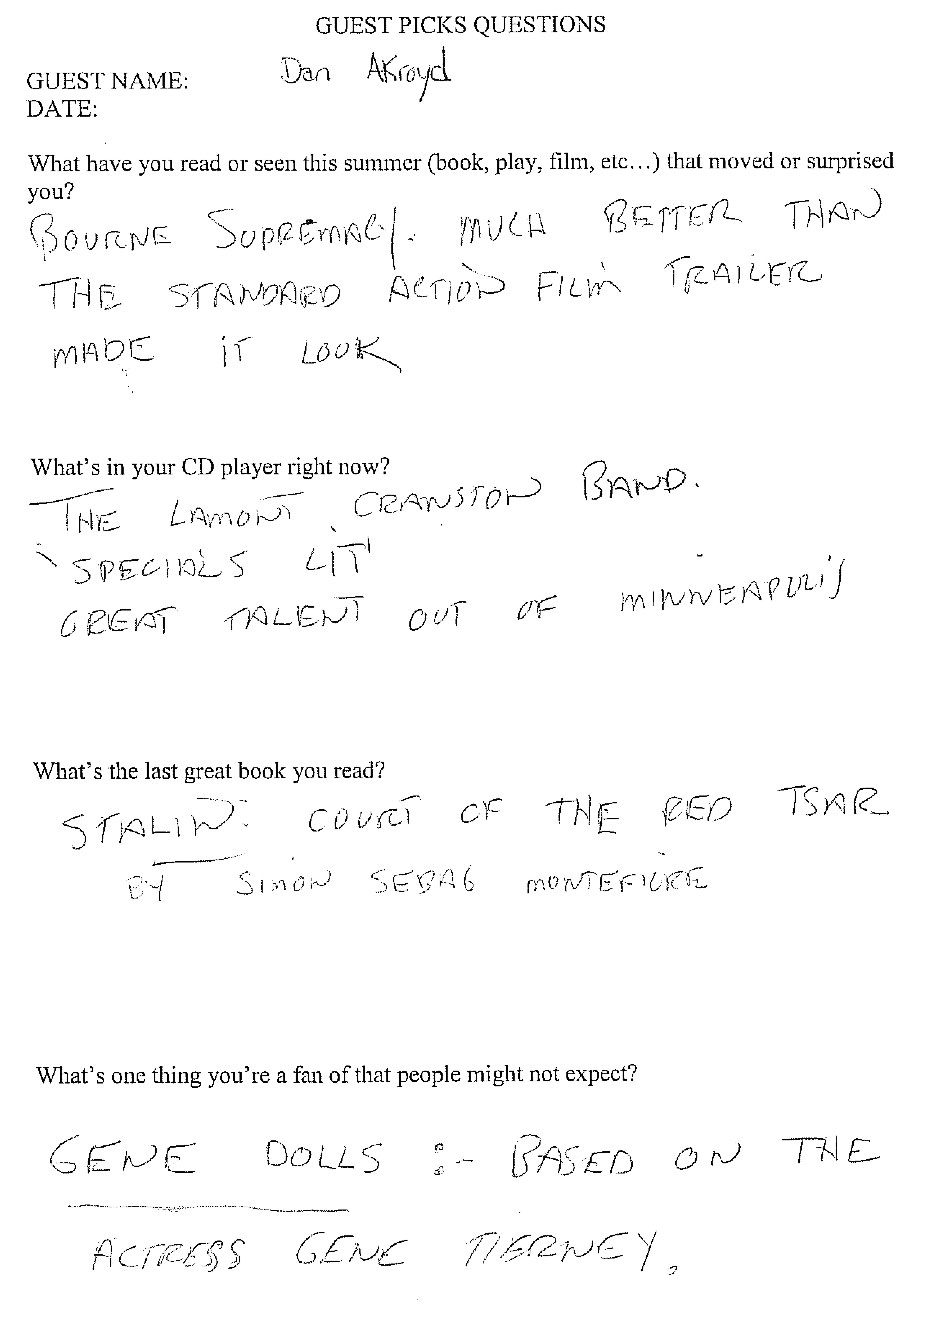 GUEST PICKS QUESTIONS
GUEST NAME: Dan AKroyd
DATE:
What have you read or seen this summer (book, play, film, etc...) that moved or surprised
you?
BOURNE SUPREMACY. MUCH BETTER THAN
THE STANDARD ACTION FILM TRAILER
MADE IT LOOK
What's in your CD player right now?
THE LAMONT CRANSTON BAND.
'SPECIALS LIT'
GREAT TALENT OUT OF MINNEAPOLIS
What's the last great book you read?
STALIN: COURT OF THE RED TSAR
BY SIMON SEBAG MONTEFIORE
What's one thing you're a fan of that people might not expect?
GENE DOLLS :- BASED ON THE
ACTRESS GENE TIERNEY.